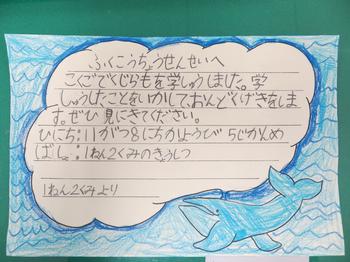 ふくこうちょうせんせいへ
こくごでくじらもを学しゅうしました。学
しゅうしたことをいかして、おんどくげきをしま
す。ぜひ見にきてください。
ひにち:11がつ8にちかようび5じかんめ
ばしょ:1ねん2くみのきょうしつ
1ねん2くみより